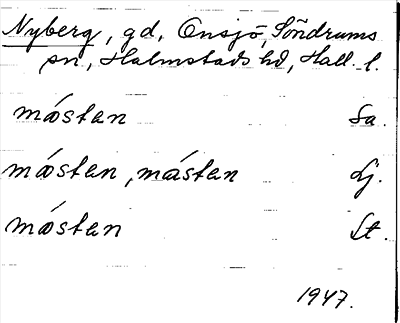 Nyberg, gd, Onsjö, Söndrums
sn., Halmstads hd, Hall. l.
mǻsten Sa.
mǻsten, másten Lj.
mǻsten Lt.
1947.